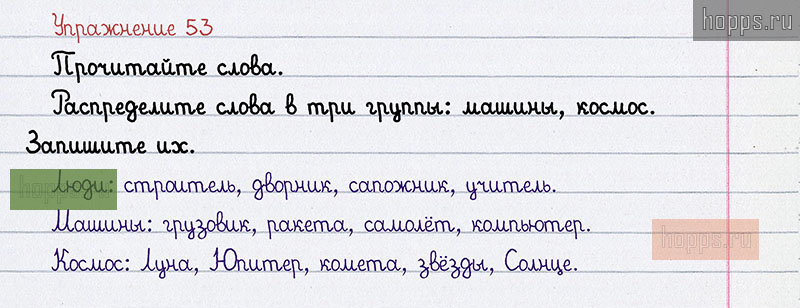 Упражнение 53
hopps.ru
Прочитайте слова.
Распределите слова в три группы: машины, космос.
Запишите их.
Люди: строитель, дворник, сапожник, учитель.
Машины: грузовик, ракета, самолёт, компьютер.
hopps.ru
Космос: Луна, Юпитер, комета, звёзды, Солнце.